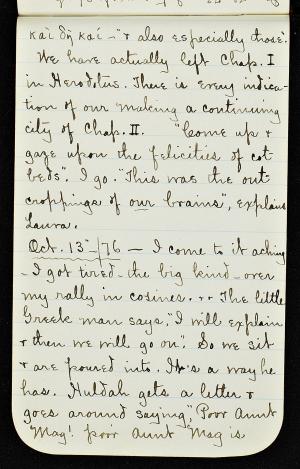 καὶ δὴ καὶ — "& also especially those".
We have actually left Chap. I
in Herodotus. There is every indica-
tion of our making a continuing
city of Chap. II. "Come up &
gaze upon the felicities of cot
beds". I go. "This was the out
croppings of our brains", explains
Laura.
Oct. 13- /76 — I come to it aching
- I got tired - the big kind - over
my rally in cosines. .. The little
Greek man says, "I will explain
& then we will go on". So we sit
& are poured into. It's a way he
has. Huldah gets a letter &
goes around saying, "Poor Aunt
"Mag! poor Aunt "Mag is